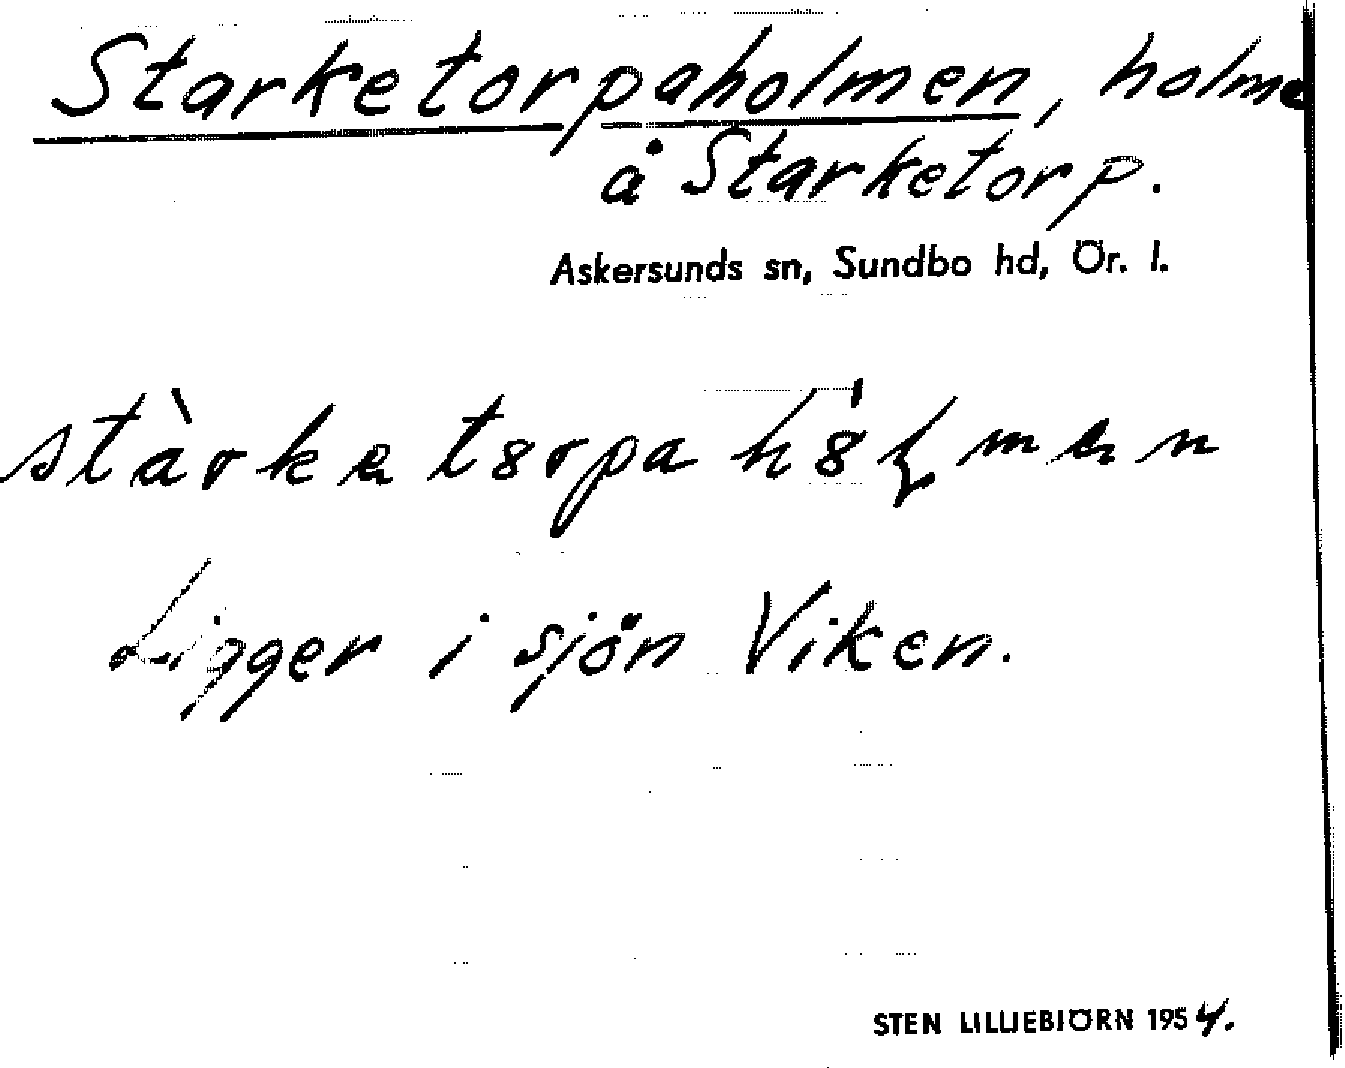 Starketorpaholmen, holme
å Starketorp.
Askersunds sn, Sundbo hd, Ör. l.
stàrketɞrpahɞ́ɭmen
Ligger i sjön Viken.
STEN LILLIEBIÖRN 1954.